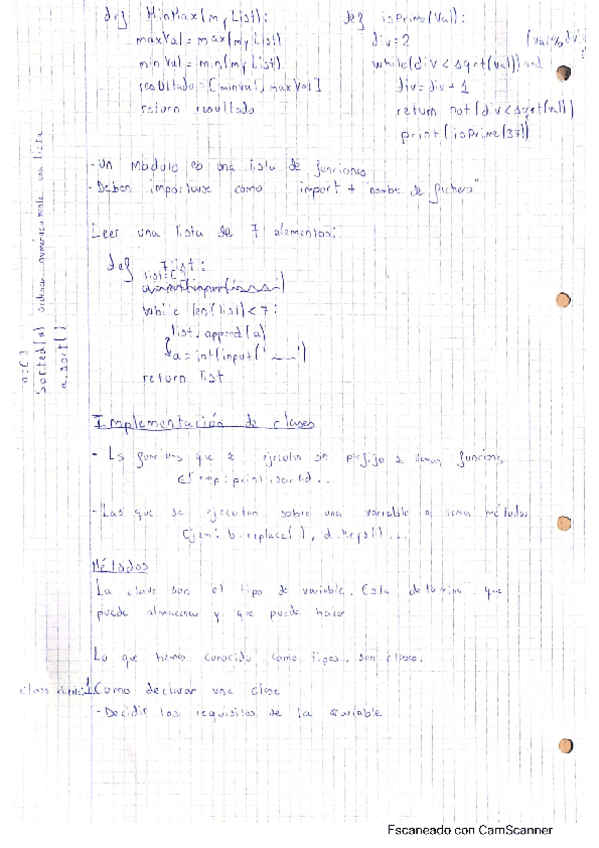 def MinMax(my List):
maxVal = max(my List)
minVal = min(my List)
resultado = [minVal, maxVal]
return resultado
def isPrime(Val):
div = 2
while(div < sqrt(val)) and (val % div
div = div + 1
return not(div < sqrt(val))
print(isPrime(37))
- Un modulo es una lista de funciones
- Deben importarse como import + "nombre de fichero"
Sorted(a) ordenar numéricamente una lista
a.sort()
Leer una lista de 7 elementos:
def 7list:
list = [
while len(list) < 7:
list.append(a)
a = int(input('
return list
Implementación de clases
- Las funciones que se ejecutan sin prefijo se llaman funciones
Ejemp: print, sorted...
- Las que se ejecutan sobre una variable se llaman métodos
Ejem: b.replace(), d.keys()...
Métodos
La clase son el tipo de variable. Esta determina que
puede almacenar y que puede hacer
Lo que hemos conocido como tipos, son clases.
class
Como declarar una clase
- Decidir los requisitos de la variable
Escaneado con CamScanner